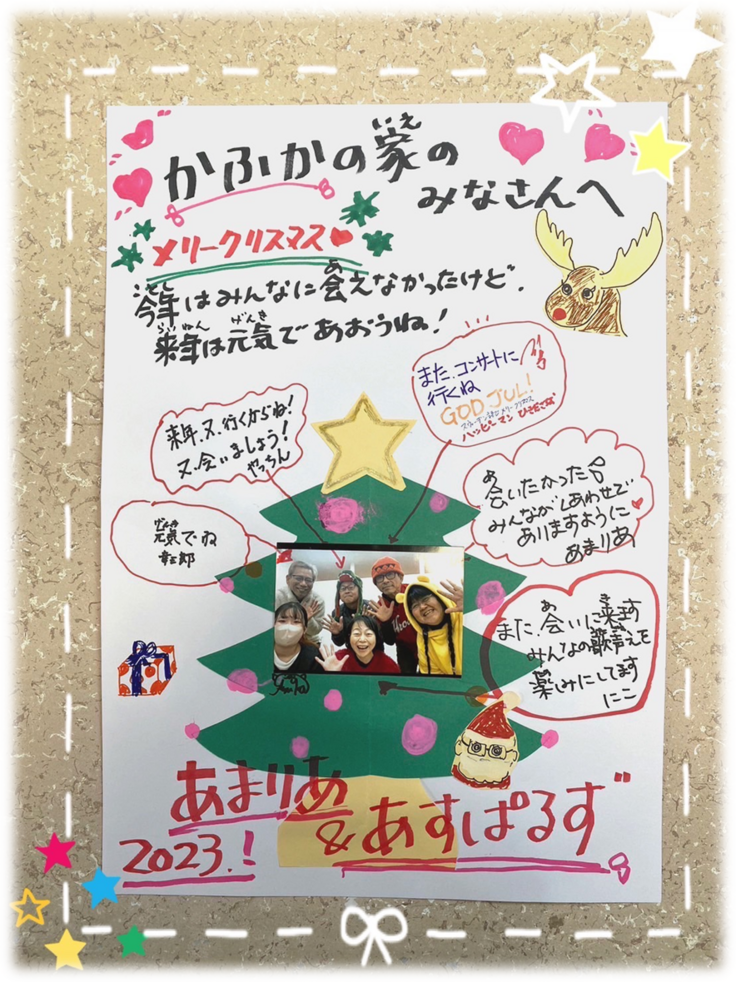 かふかの家の
いえ
みなさんへ
メリークリスマス
ことし
今年はみんなに会えなかったけど、
あ
らいねん げんき
来年は元気であおうね!
来年、又、行くからね!
又、会いましょう!
やっちん
また、コンサートに
行くね
GOD JUL!
スウェーデン語で メリークリスマス
ハッピーマン
げんき
元気でね
あ
会いたかった
みんながしあわせで
ありますように
あまりあ
あ き
また、会いに来ます
みんなの歌声を
楽しみにしてます
にこ
あまりあ
&あすぱるず
2023.!